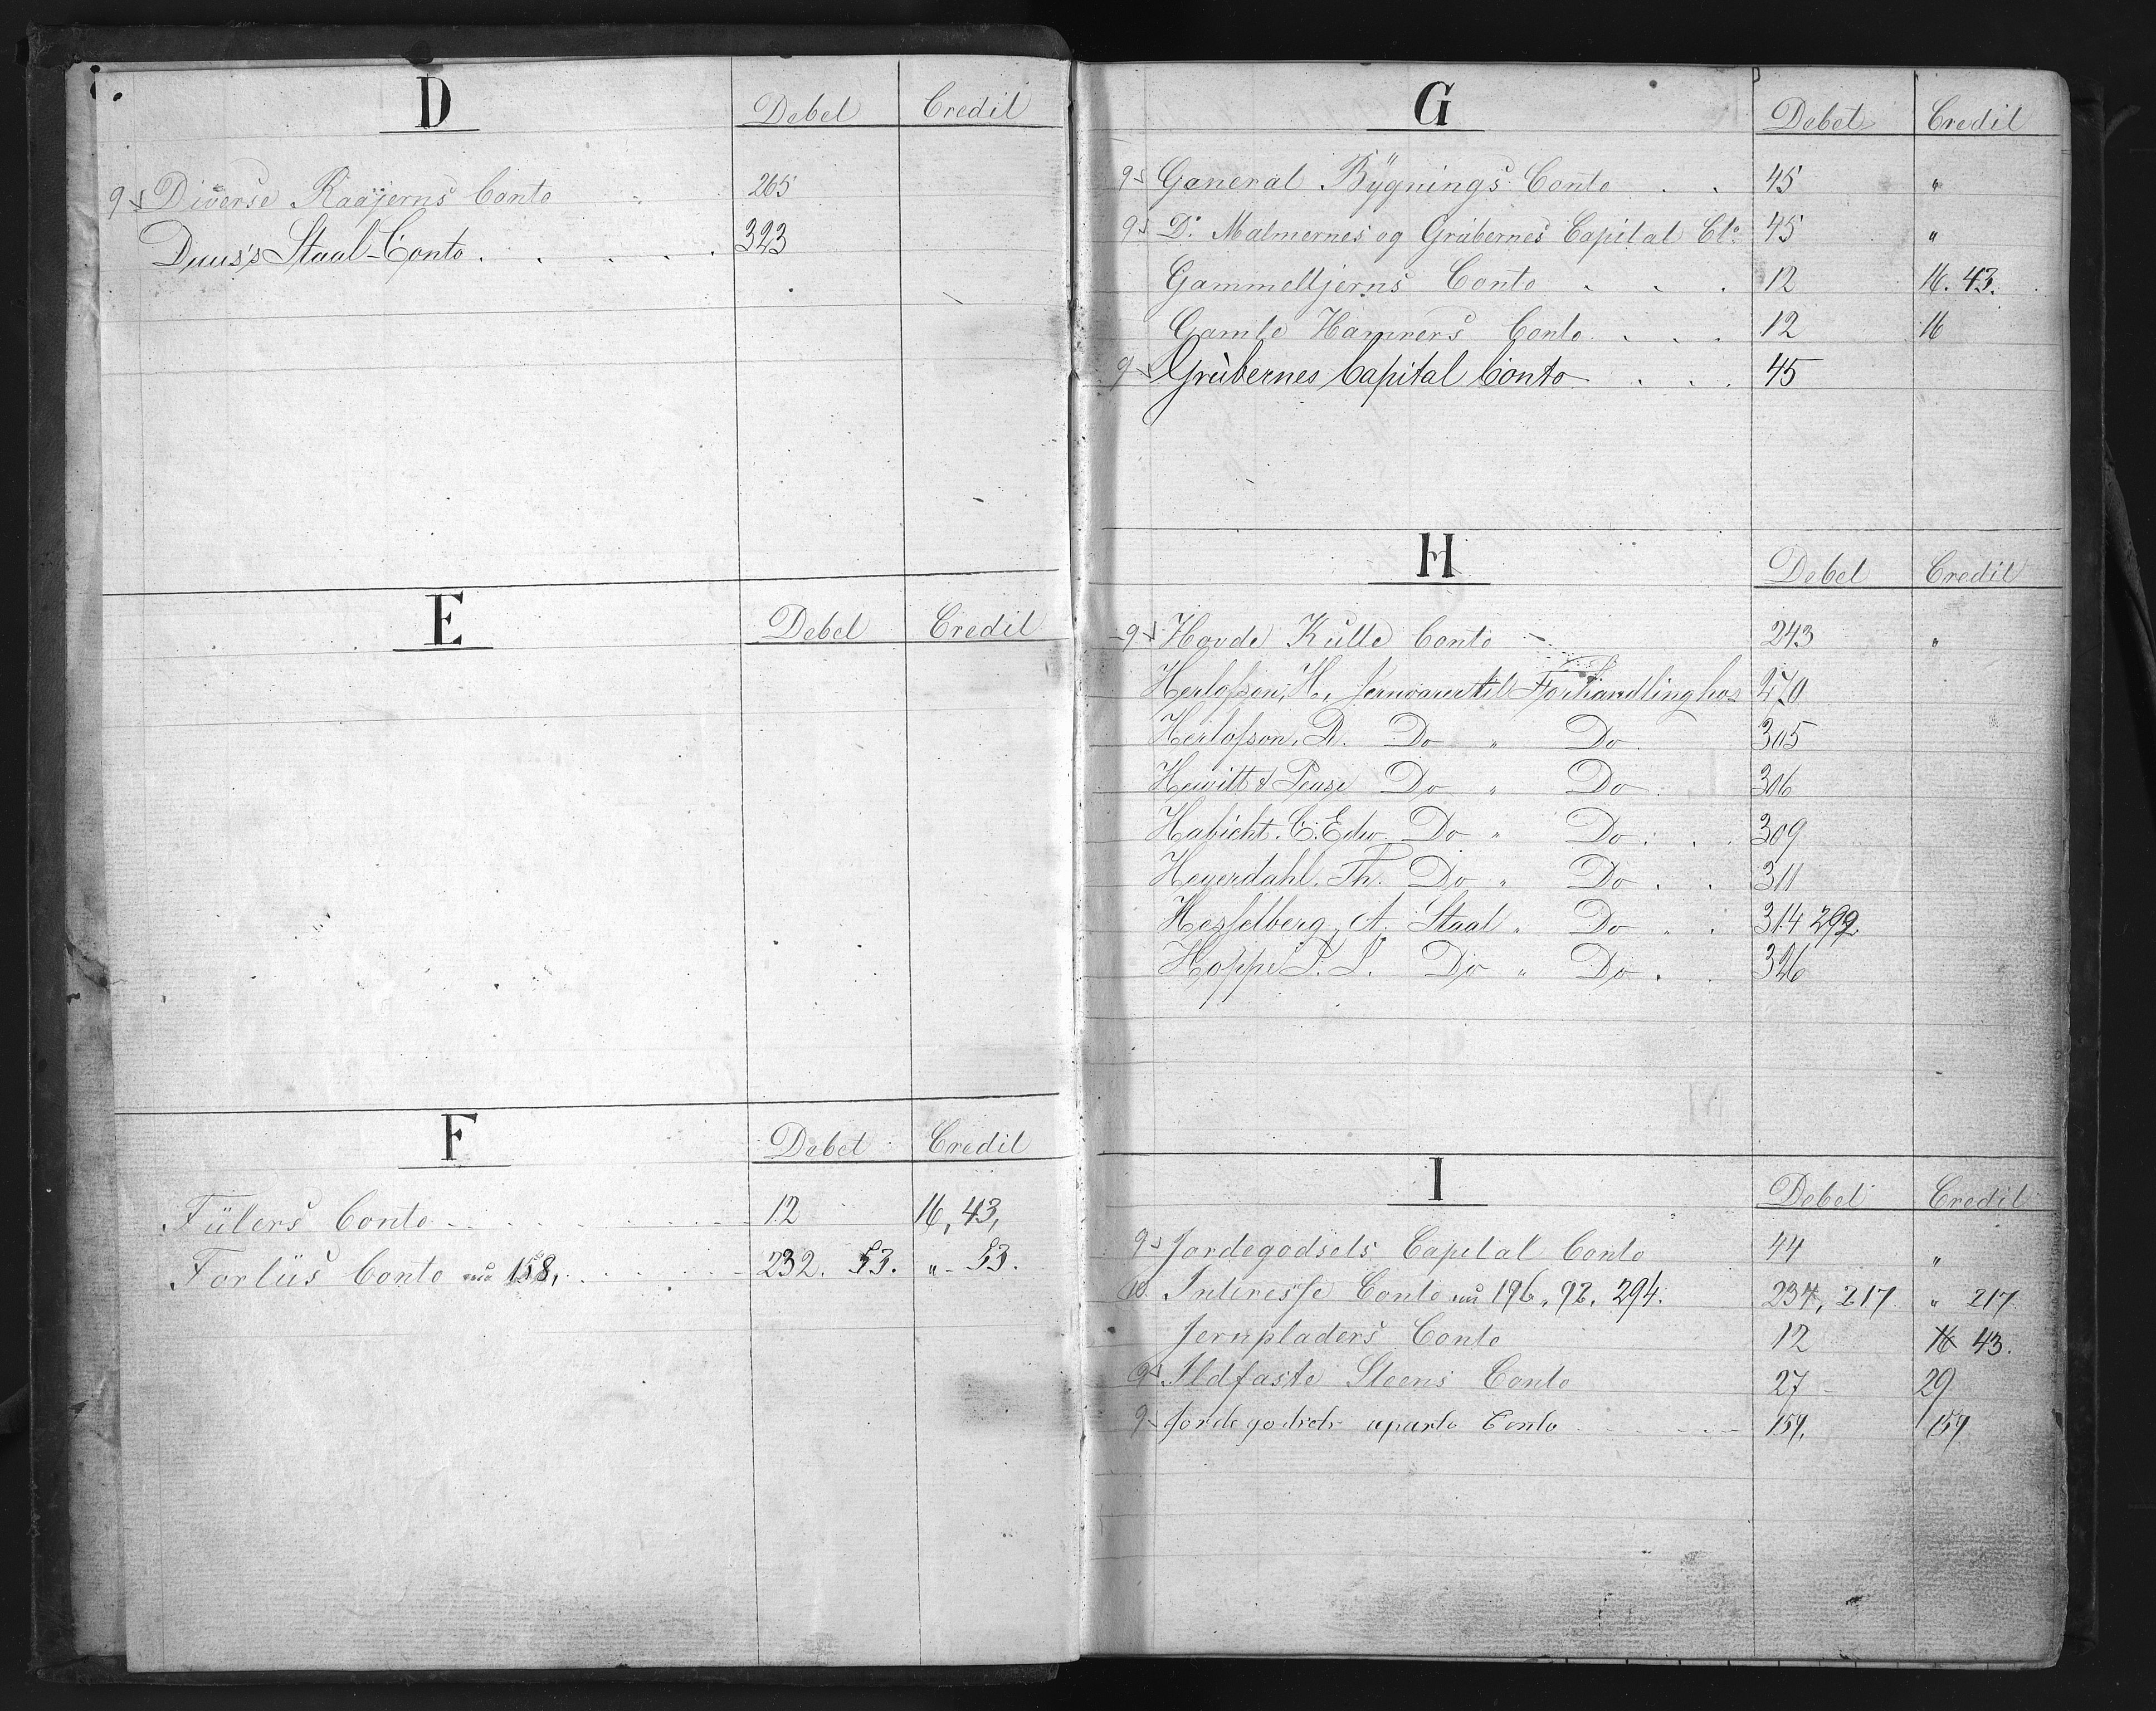 D Debet Credit
9 Diverse Raajerns Conto 265
Duus's Staal-Conto . . . . . 323
E Debet Credit
F Debet Credit
Fülers Conto 12 16, 43,
Forlüs Conto 158, 232. 53. " 53.
G Debet Credit
9 General Bygnings Conto . . 45 "
9 Do Malmernes og Grübernes Capital Cto 45 "
Gammeltjerns Conto . . . 12 16. 43.
Gamle Hamners Conto . . . 12 16
9 Grübernes Capital Conto . . . 45
H Debet Credit
9 Hovde Kulle Conto 243 "
Herlofson, H. Jernvarer til Forhandling hos 270
Herlofson, P. Do " Do 305
Hewitt & Pease Do " Do 306
Habicht. C. Edw. Do " Do . . . 309
Heyerdahl. Th. Do " Do . . 311
Hesselberg, A. Staal " Do " . 314 292
Hoppe Do " Do . . 326
I Debet Credit
9 Jordegodsets Capital Conto 44 "
10 Interesse Conto 196, 92, 294. 234, 217. " 217
Jernpladers Conto 12 16 43.
9 Ildfaste Steens Conto 27 29
9 Jordegodsets aparte Conto 159. 159